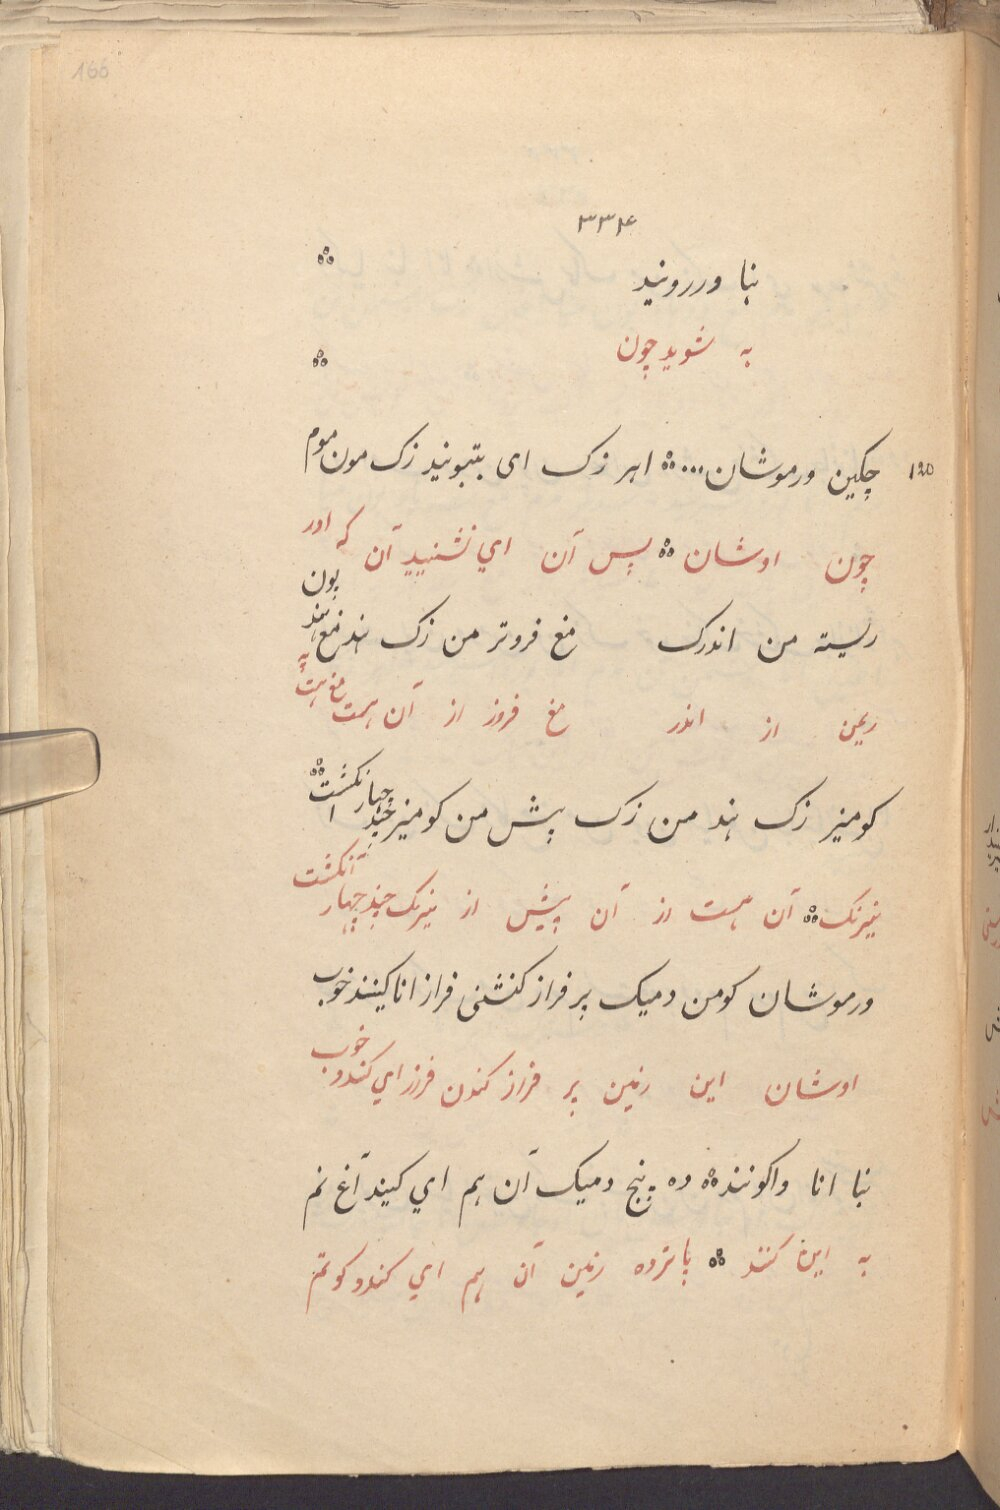 166
۳۳۴
بنا وررونید ஃ
به شوید چون ஃ
۱۲۵ چکین ورموشان...ஃ اہر زک ای بتبوند زک مون موم
چون اوشان ஃ پس آن اي نشنیید آن که اور
ریسته من اندرک مغ فروتر من زک ہند مغ ہند بون
ریمن از اندر مغ فروز از آن ہمت مغ ہمت به
کومیز زک ہند من زک پیش من کومیز چند چہار انکشت ஃ
نیرنک ஃ آن ہمت از آن پیش از نیرنک چند چہار انکشت
ورموشان کو من دمیک پر فراز کنشنی فراز انا کینند خوب
اوشان این زمین پر فراز کندن فرز اي کندو خوب
بنا انا واکونند ஃ ده پنج دمیک آن ہم اي کیند آغ نم
به این کنند ஃ پانزده زمین آن ہم اي کندو کو تم